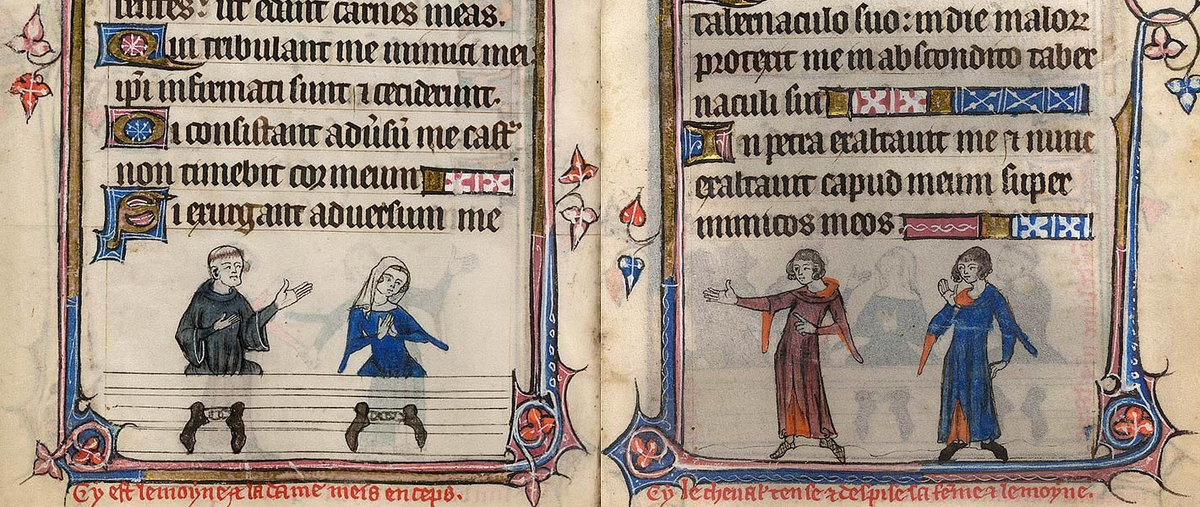 ut edant carnes meas.
Qui tribulant me inimici mei:
ip̄i infirmati sunt ⁊ ceciderunt.
Si consistant adūsū me castr
non timebit cor meum
Si exurgant aduersum me
Cy est le moyne ⁊ la dame meis en ceps.
tabernaculo suo: in die maloꝝ
protexit me in abscondito taber
naculi sui
In petra exaltauit me ⁊ nunc
exaltauit capud meum super
inimicos meos.
Cy le cheual' tense ⁊ despise sa feme ⁊ le moyne.